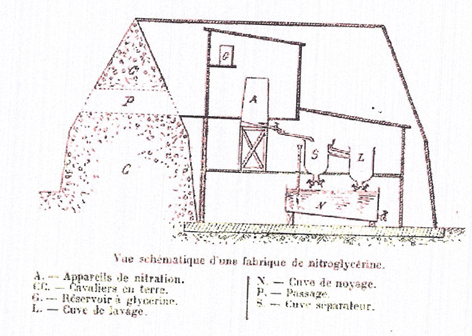 C
P
C
G
A
S
L
N
Vue schématique d'une fabrique de nitroglycérine.
A. — Appareils de nitration.
CC. — Cavaliers en terre.
G. — Réservoir à glycerine.
L. — Cuve de lavage.
N. — Cuve de noyage.
P. — Passage.
S. — Cuve separateur.